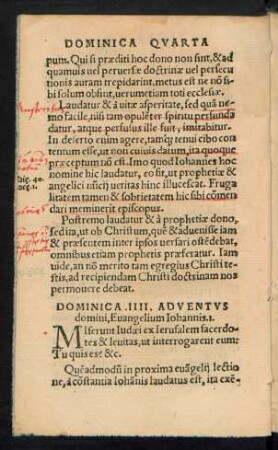 DOMINICA QVARTA
pum. Qui si præditi hoc dono non sint, & ad
quamuis uel peruersæ doctrinæ uel persecu
tionis auram trepidarint, metus est ne nō si
bi solum obsint, uerumetiam toti ecclesiæ.
Laudatur & à uitæ asperitate, sed quā ne-
mo facile, nisi tam opulēter spiritu perfunda
datur, atque perfusus ille fuit, imitabitur.
In deserto enim agere, tamq; tenui cibo con
tentum esse, ut non cuiuis datum, ita quoque
præceptum nō est. Imo quod Iohannes hoc
nomine hic laudatur, eo fit, ut prophetiæ &
angelici nūcij ueritas hinc illucescat. Fruga
litatem tamen & sobrietatem hic sibi cōmen
dari meminerit episcopus.
Postremo laudatur & à prophetiæ dono,
sed ita, ut ob Christum, quē & aduenisse iam
& præsentem inter ipsos uersari ostēdebat,
omnibus etiam prophetis præferatur. Iam
uide, an nō merito tam egregius Christi te-
stis, ad recipiendam Christi doctrinam nos
permouere debeat.
DOMINICA .IIII. ADVENTVS
domini, Euangelium Iohannis.1.
Miserunt Iudæi ex Ierusalem sacerdo-
tes & leuitas, ut interrogarent eum:
Tu quis es? &c.
Quēadmodū in proxima euāgelij lectio
ne, à cōstantia Iohānis laudatus est, ita exē-